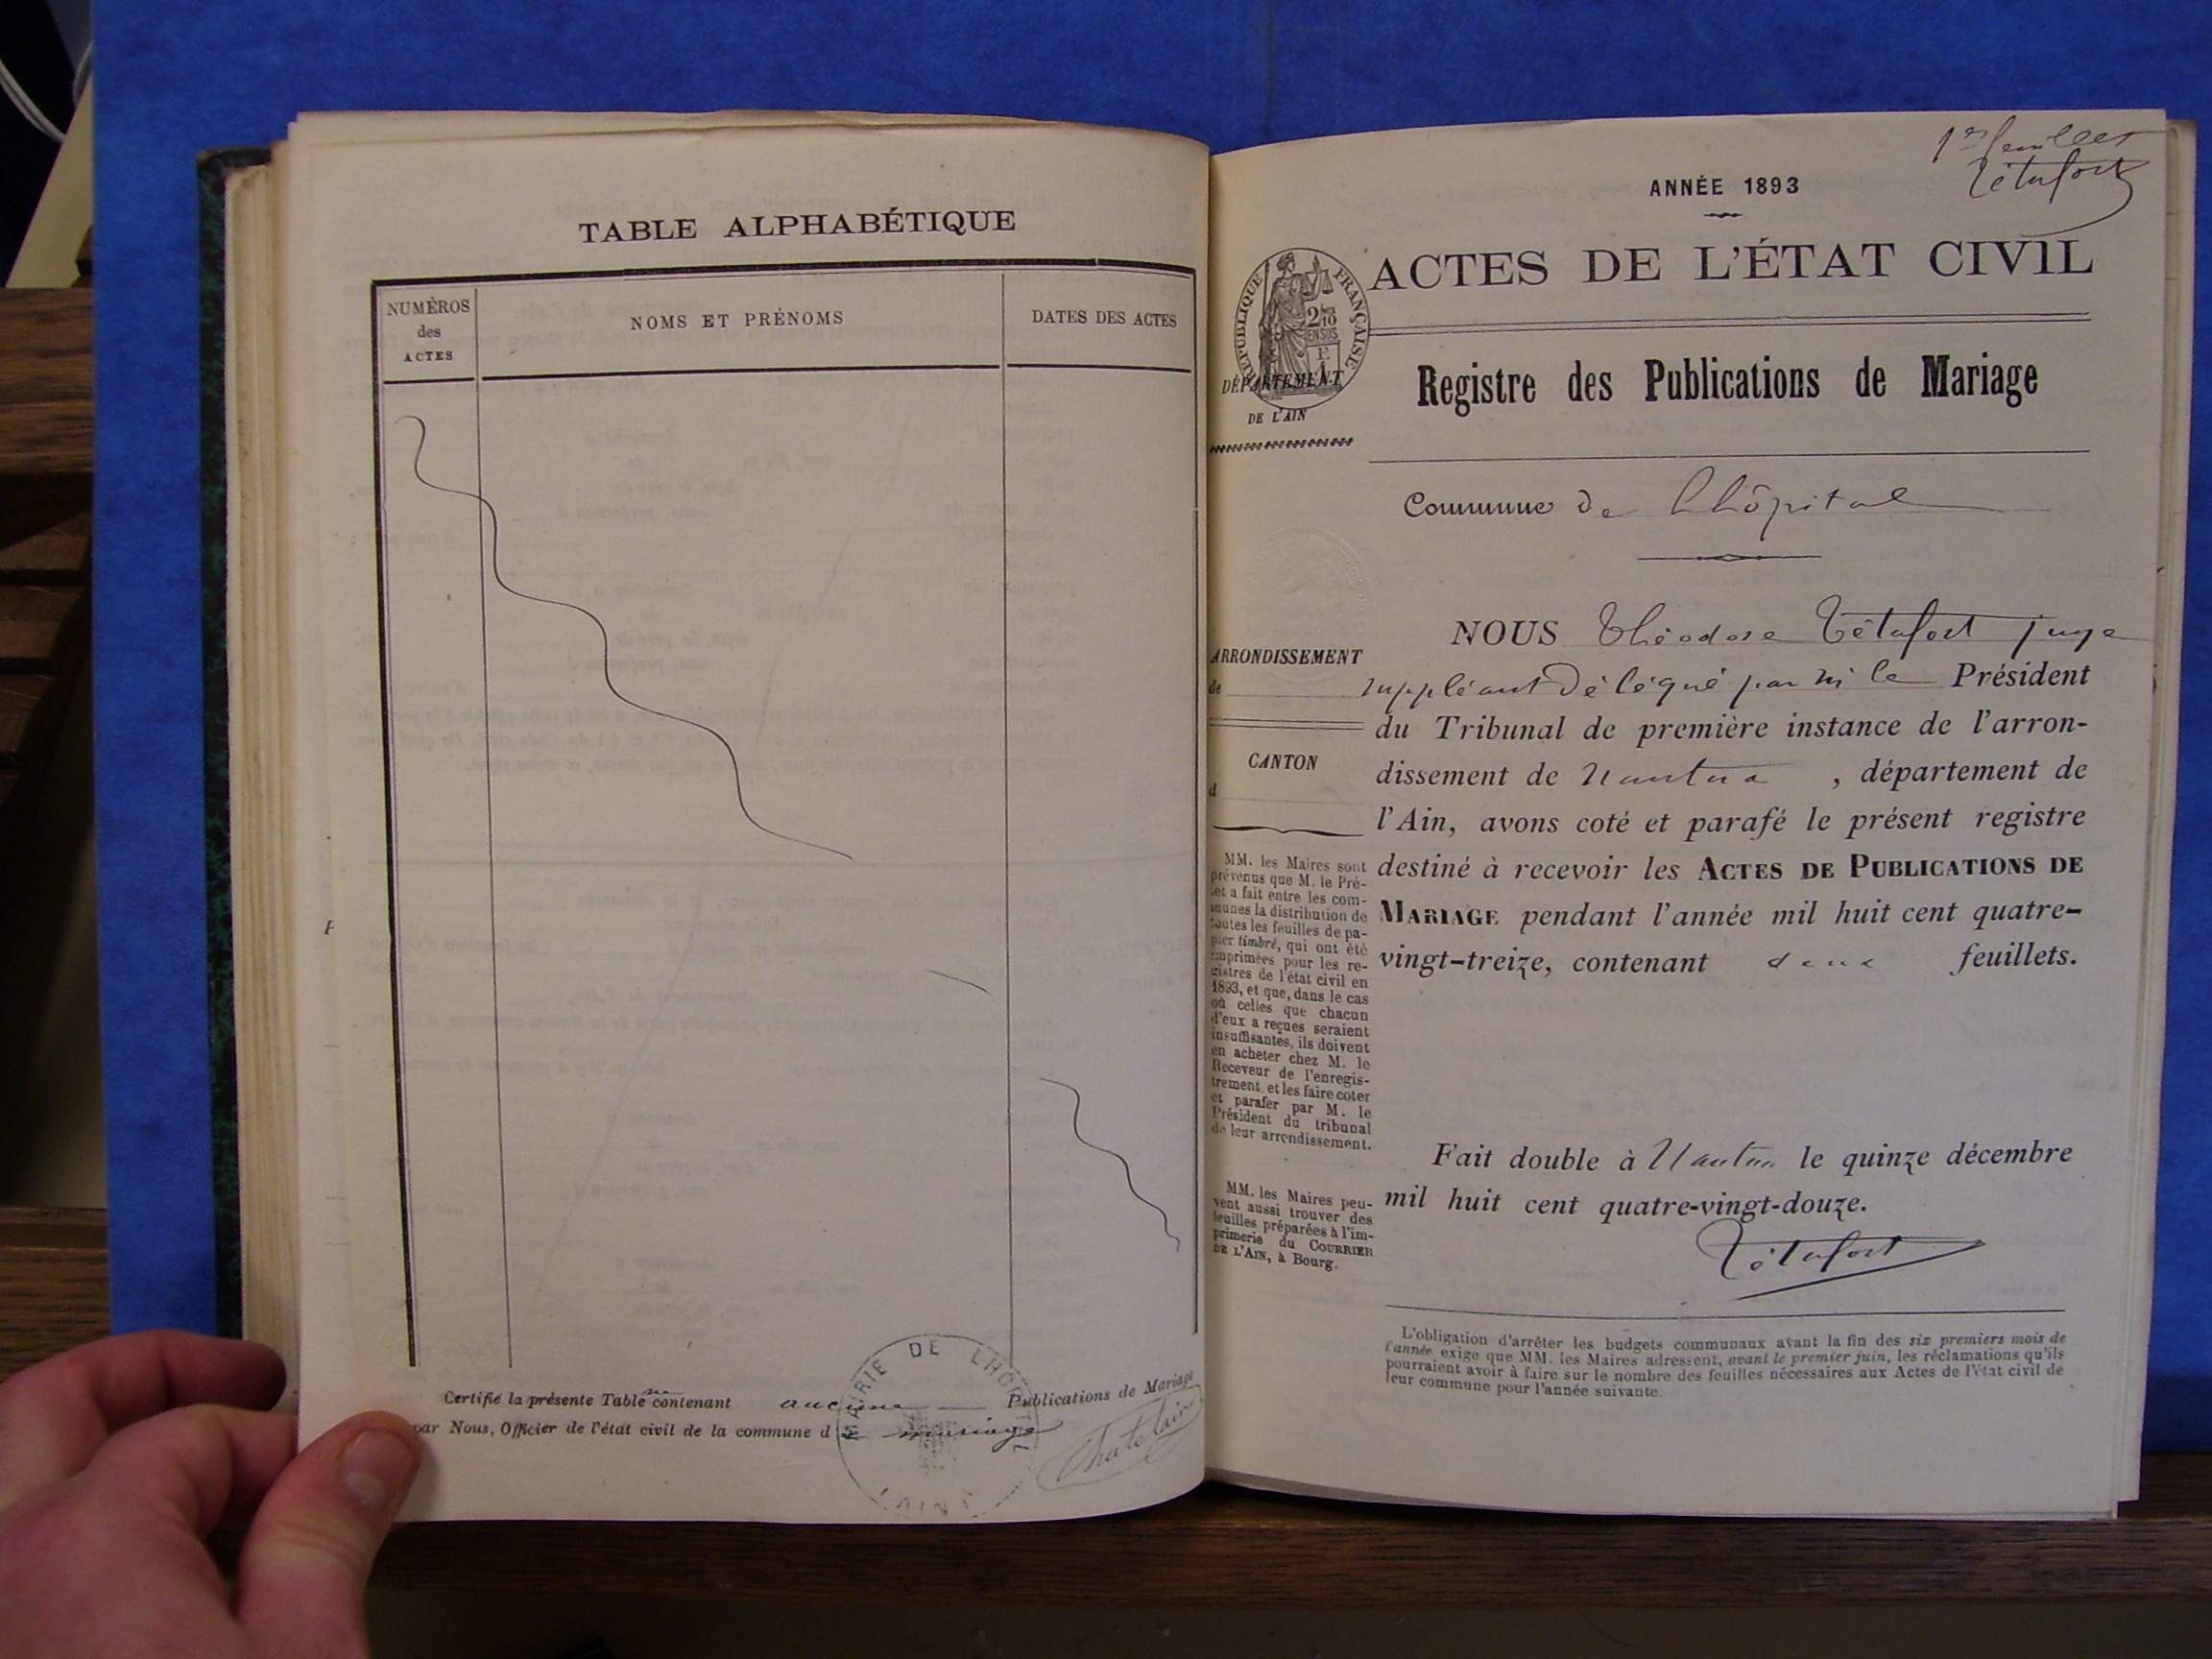 TABLE ALPHABÉTIQUE
NUMÉROS
des
ACTES
NOMS ET PRÉNOMS
DATES DES ACTES
Certifié la présente Table ne contenant aucune Publications de Mariage
par Nous, Officier de l'état civil de la commune d mariage
MAIRIE DE LHÔPITAL
Chatelain
1er feuillet
Tétafort
ANNÉE 1893
ACTES DE L'ÉTAT CIVIL
RÉPUBLIQUE FRANÇAISE
2/10
EN SUS
DÉPARTEMENT
DE L'AIN
Registre des Publications de Mariage
Commune de Lhôpital
ARRONDISSEMENT
de
CANTON
d
MM. les Maires sont
prévenus que M. le Pré-
fet a fait entre les com-
munes la distribution de
toutes les feuilles de pa-
pier timbré, qui ont été
imprimées pour les re-
gistres de l'état civil en
1893, et que, dans le cas
où celles que chacun
d'eux a reçues seraient
insuffisantes, ils doivent
en acheter chez M. le
Receveur de l'enregis-
trement et les faire coter
et parafer par M. le
Président du tribunal
de leur arrondissement.
MM. les Maires peu-
vent aussi trouver des
feuilles préparées à l'im-
primerie du COURRIER
DE L'AIN, à Bourg.
NOUS Théodore Tétafort juge
suppléant délégué par M le Président
du Tribunal de première instance de l'arron-
dissement de Nantua , département de
l'Ain, avons coté et parafé le présent registre
destiné à recevoir les ACTES DE PUBLICATIONS DE
MARIAGE pendant l'année mil huit cent quatre-
vingt-treize, contenant deux feuillets.
Fait double à Nantua le quinze décembre
mil huit cent quatre-vingt-douze.
Tétafort
L'obligation d'arrêter les budgets communaux avant la fin des six premiers mois de
l'année exige que MM. les Maires adressent, avant le premier juin, les réclamations qu'ils
pourraient avoir à faire sur le nombre des feuilles nécessaires aux Actes de l'état civil de
leur commune pour l'année suivante.